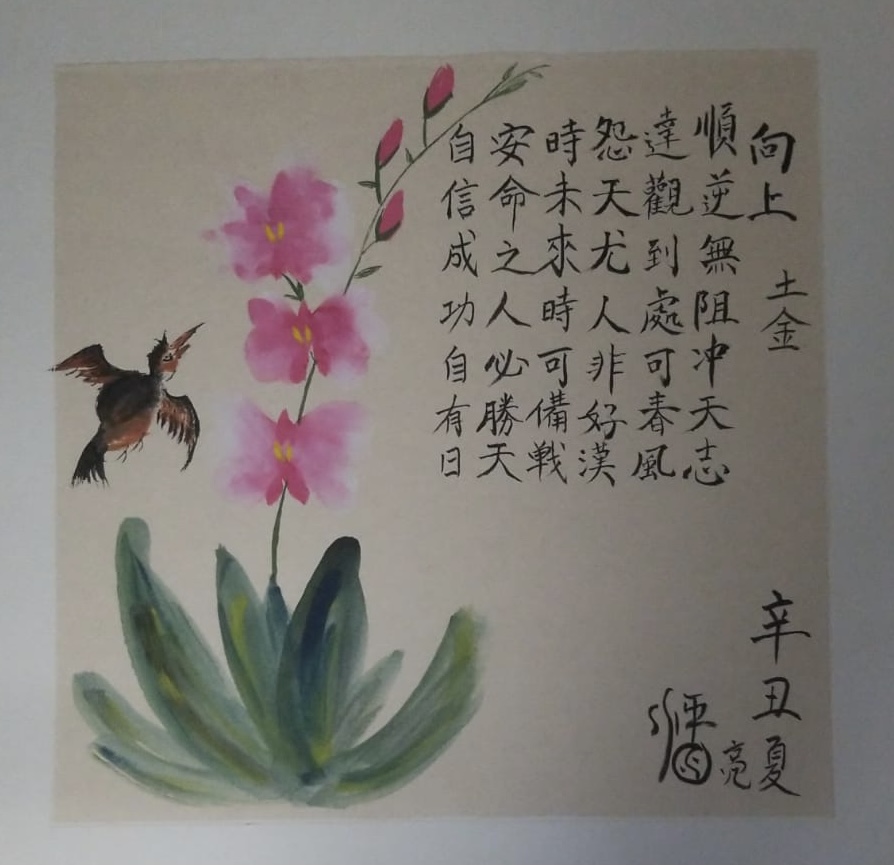 向上
土金
順逆無阻冲天志
達觀到處可春風
怨天尤人非好漢
時未來時可備戰
安命之人必勝天
自信成功自有日
辛丑夏
亮